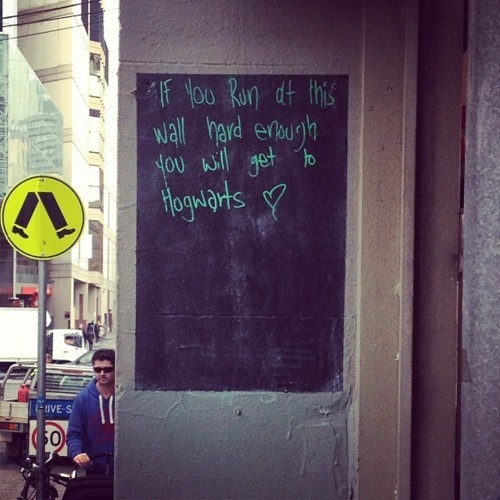 If You Run at this
wall hard enough
you will get to
Hogwarts ♡
DRIVE-S
50